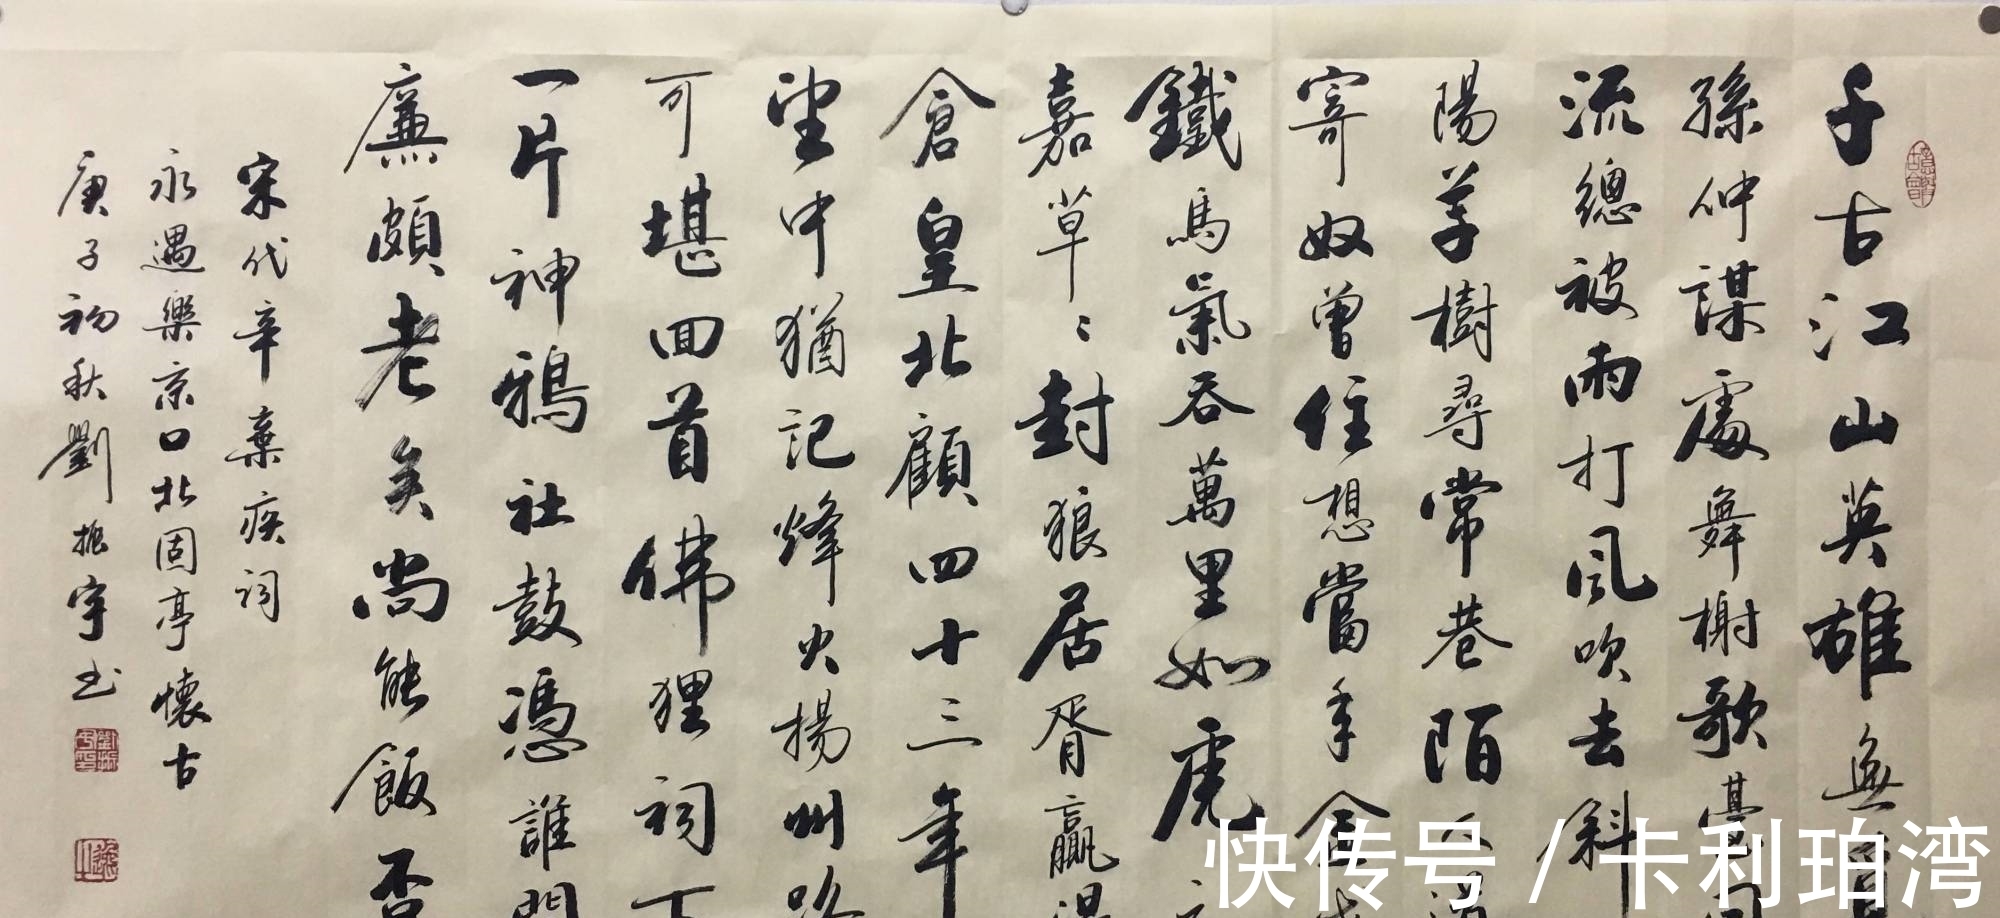 千古江山英雄無
孫仲謀處舞榭歌臺
流總被雨打風吹去斜
陽草樹尋常巷陌人
寄奴曾住想當年金
鐵馬氣吞萬里如虎
嘉草〻封狼居胥贏得
倉皇北顧四十三年
望中猶記烽火揚州路
可堪回首佛狸祠下
一片神鴉社鼓憑誰問
廉頗老矣尚能飯否
宋代辛棄疾詞
永遇樂京口北固亭懷古
庚子初秋劉振宇书
快传号 / 卡利珀湾